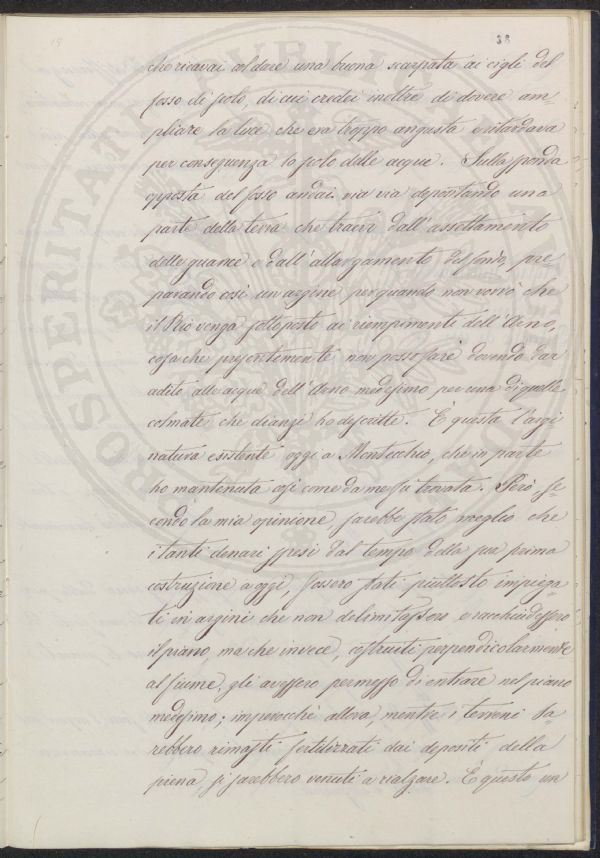 19
38
che ricavai col dare una buona scarpata ai cigli del
fosso di scolo, di cui credei inoltre di dovere am-
pliare la luce che era troppo angusta e ritardava
per conseguenza lo scolo delle acque. Sulla sponda
opposta del fosso andai via via depositando una
parte della terra che trassi dall'assettamento
delle guance e dall'allargamento del fondo, pre
parando così un argine per quando non vorrò che
il Rio venga sottoposto ai riempimenti dell'Arno,
cosa che presentemente non posso fare dovendo dar
adito alle acque dell'Arno medesimo per una di quelle
colmate che dianzi ho descritte. È questa l'argi
natura esistente oggi a Montecchio, che in parte
ho mantenuta così come da me fu trovata. Però, se-
condo la mia opinione, sarebbe stato meglio che
i tanti denari spesi dal tempo della sua prima
costruzione a oggi, fossero stati piuttosto impiega-
ti in argini che non delimitassero e racchiudessero
il piano ma che invece, costruiti perpendicolarmente
al fiume, gli avessero permesso di entrare nel piano
medesimo; imperocchè allora, mentre i terreni sa-
rebbero rimasti fertilizzati dai depositi della
piena, si sarebbero venuti a rialzare. È questo un
PROSPERITATI PVBLICAE